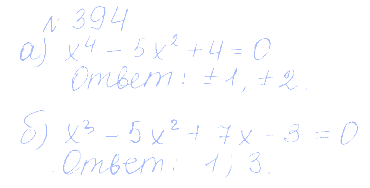 № 394
а) x⁴ - 5x² + 4 = 0
Ответ: ±1, ±2.
б) x³ - 5x² + 7x - 3 = 0
Ответ: 1; 3.